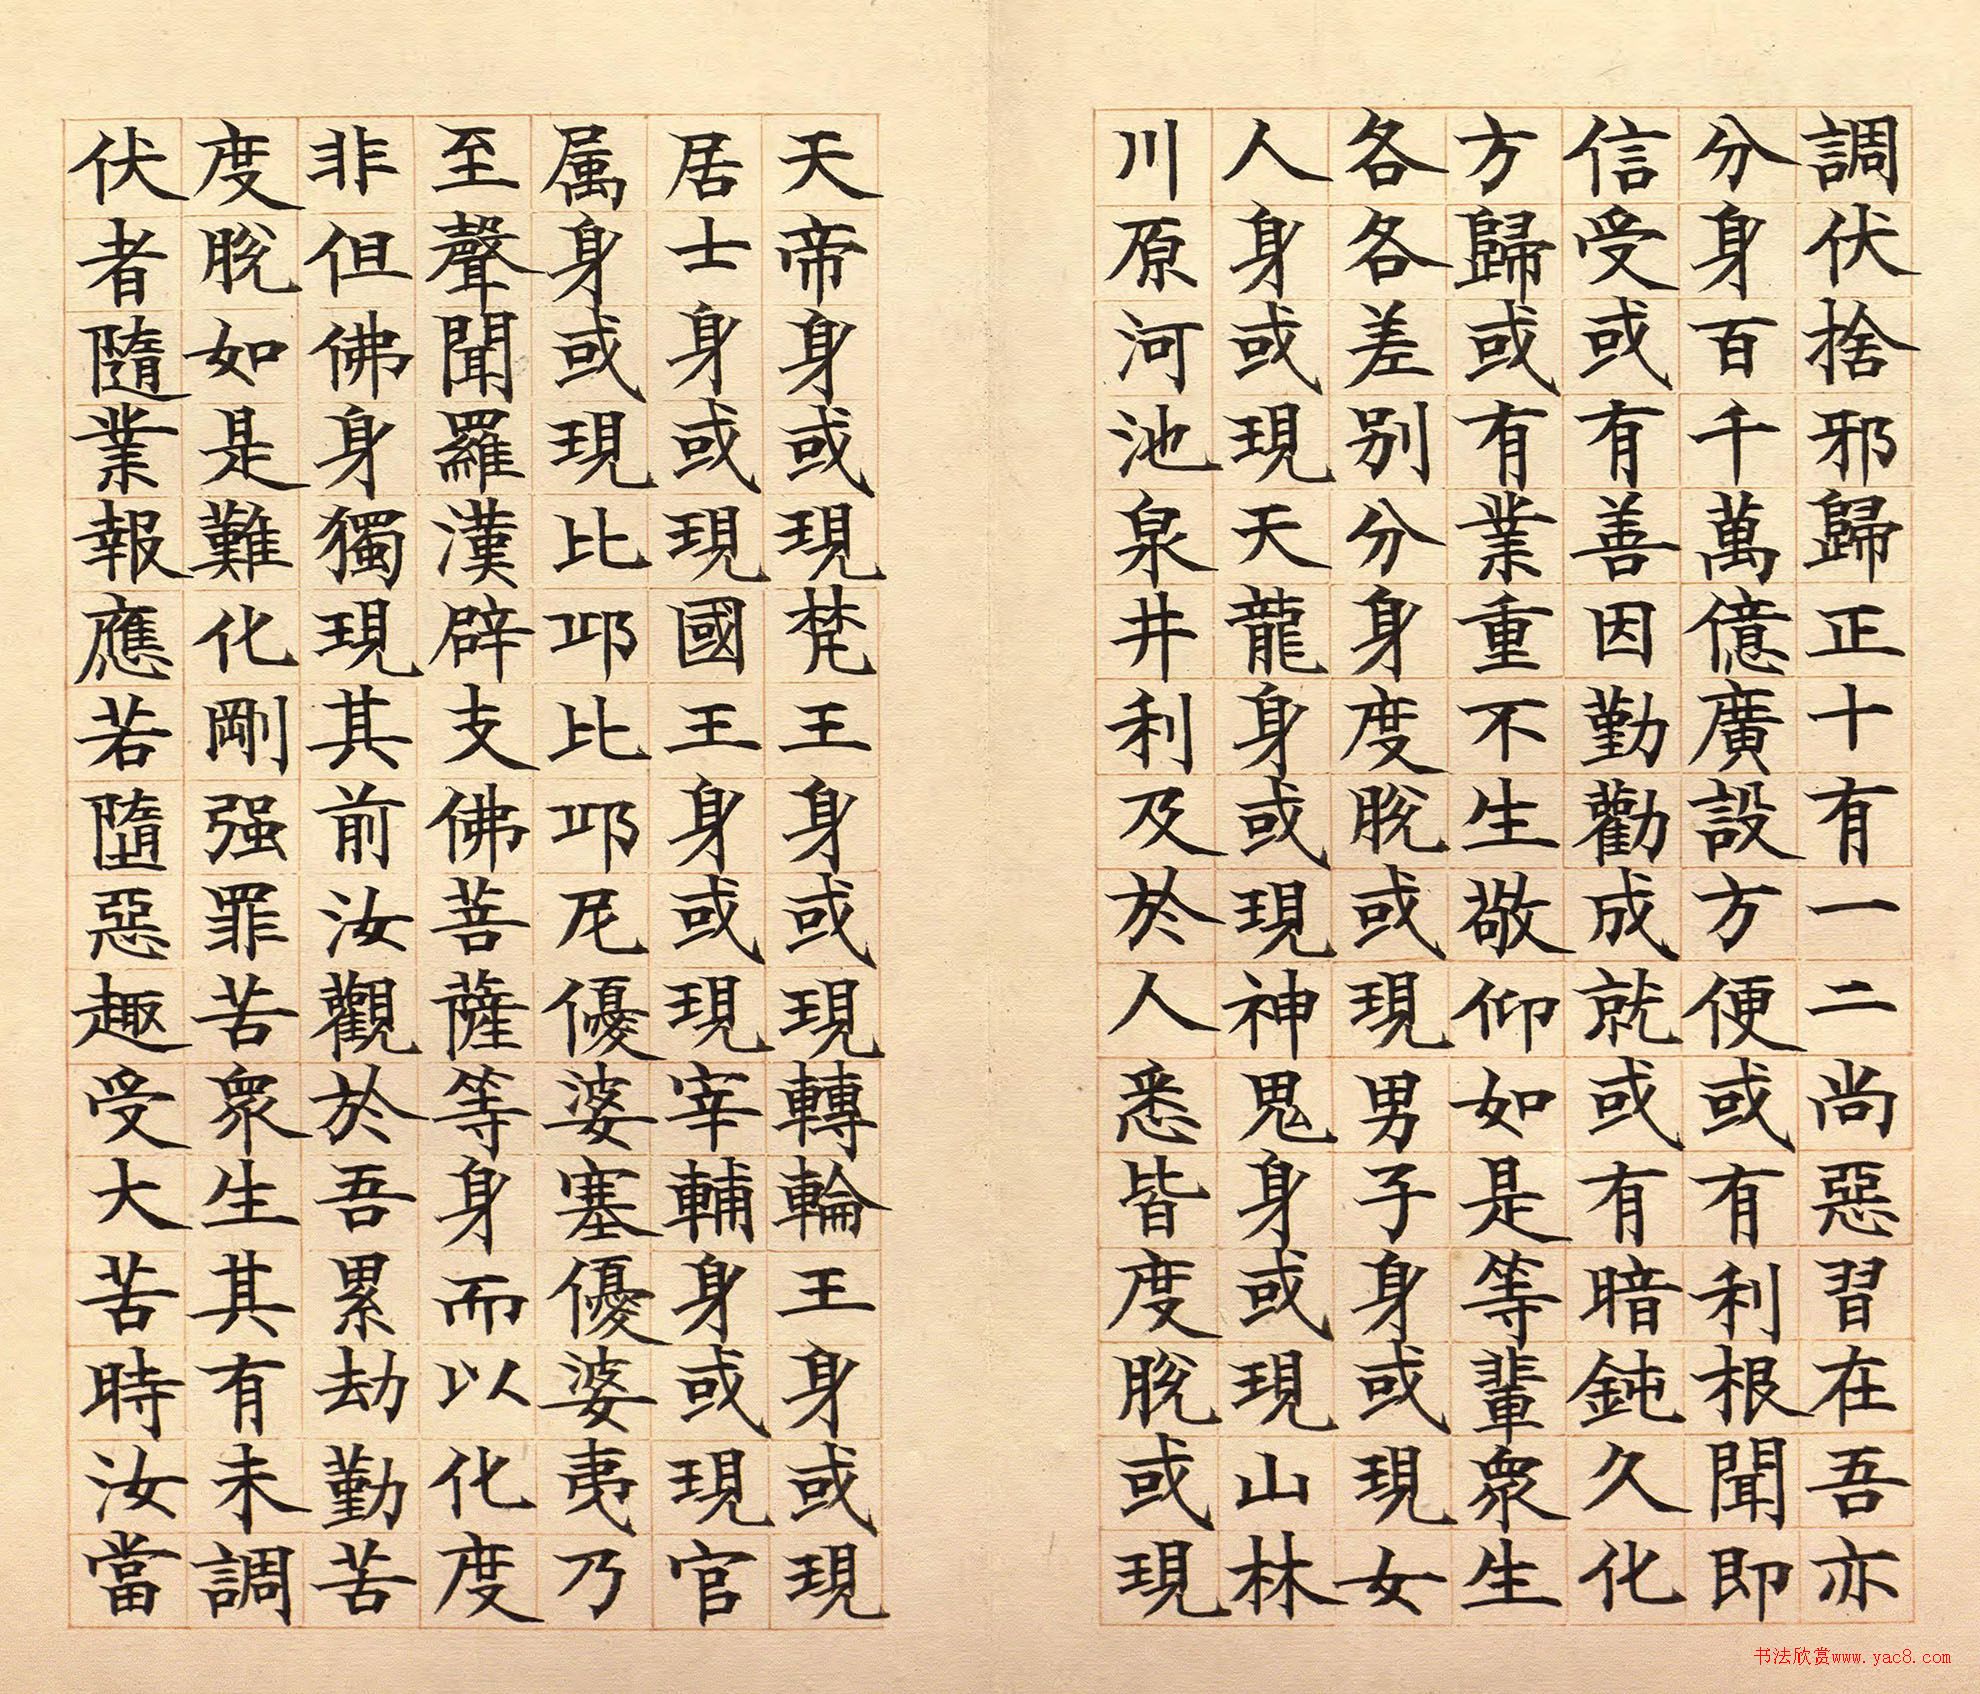 調伏捨邪歸正十有一二尚惡習在吾亦
分身百千萬億廣設方便或有利根聞即
信受或有善因勤勸成就或有暗鈍久化
方歸或有業重不生敬仰如是等輩眾生
各各差別分身度脫或現男子身或現女
人身或現天龍身或現神鬼身或現山林
川原河池泉井利及於人悉皆度脫或現
天帝身或現梵王身或現轉輪王身或現
居士身或現國王身或現宰輔身或現官
属身或現比邱比邱尼優婆塞優婆夷乃
至聲聞羅漢辟支佛菩薩等身而以化度
非但佛身獨現其前汝觀於吾累劫勤苦
度脫如是難化剛强罪苦眾生其有未調
伏者隨業報應若墮惡趣受大苦時汝當
书法欣赏www.yac8.com